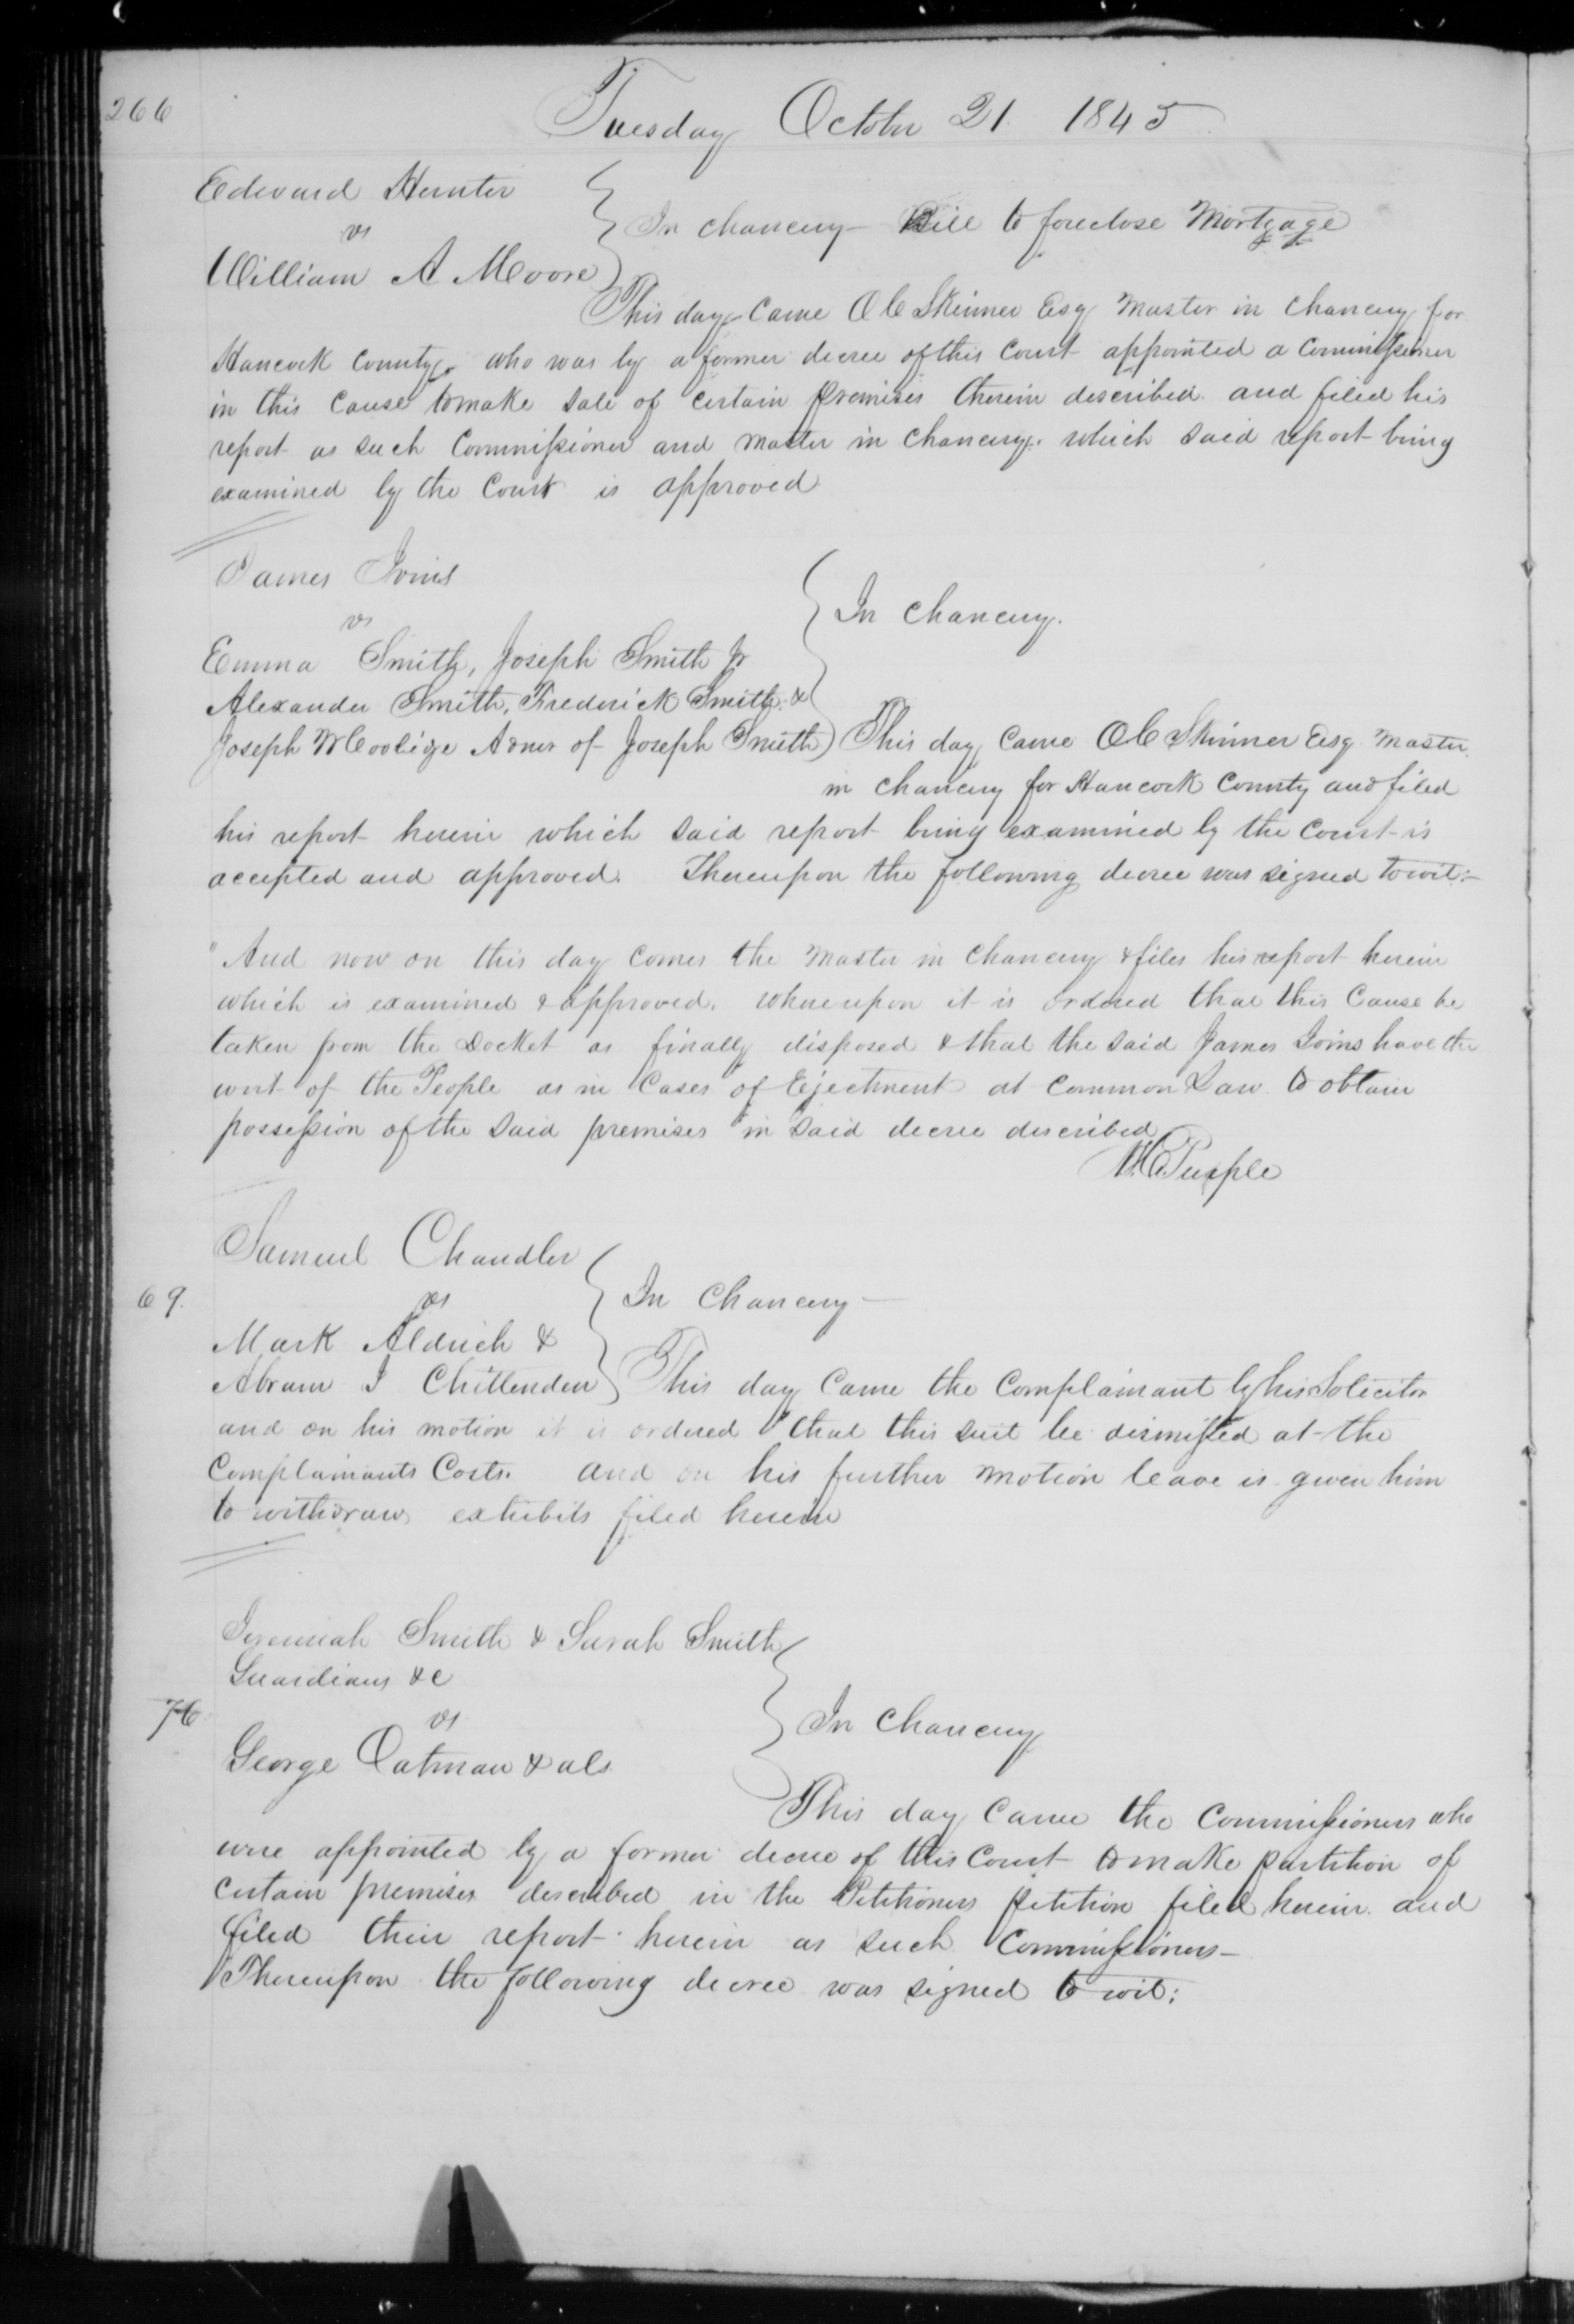 266
Tuesday October 21 1845
Edward Hunter
vs
William A Moore
In chancery — Bill to foreclose Mortgage
This day came O C Skinner Esq Master in chancery for
Hancock County, who was by a former decree of this Court appointed a Commissioner
in this Cause to make Sale of Certain premises therein described and filed his
report as such Commissioner and Master in Chancery. which said report being
examined by the Court is approved
James Ivins
vs
Emma Smith, Joseph Smith Jr
Alexander Smith, Frederick Smith &
Joseph W Coolige Admr of Joseph Smith
In chancery.
This day came O C Skinner Esq. Master
in chancery for Hancock County and filed
his report herein which said report being examined by the Court is
accepted and approved. Thereupon the following decree was signed towit:-
"And now on this day comes the Master in chancery & files his report herein
which is examined & approved. whereupon it is ordered that this Cause be
taken from the Docket as finally disposed & that the said James Ivins have the
writ of the People as in Cases of Ejectment at Common Law to obtain
possession of the said premises in said decree described
N.C. Purple
Samuel Chandler
69.
vs
Mark Aldrich &
Abram I Chittenden
In Chancery —
This day came the Complainant by his Solicitor
and on his motion it is ordered that this suit be dismissed at the
Complainants Costs. and on his further motion leave is given him
to withdraw exhibits filed herein
Jeremiah Smith & Sarah Smith
Guardians &c
76
vs
George Oatman & als.
In Chancery
This day came the Commissioners who
were appointed by a former decree of this Court to make partition of
certain premises described in the Petitioners petition filed herein and
filed their report herein as such Commissioners—
Thereupon the following decree was signed to wit: